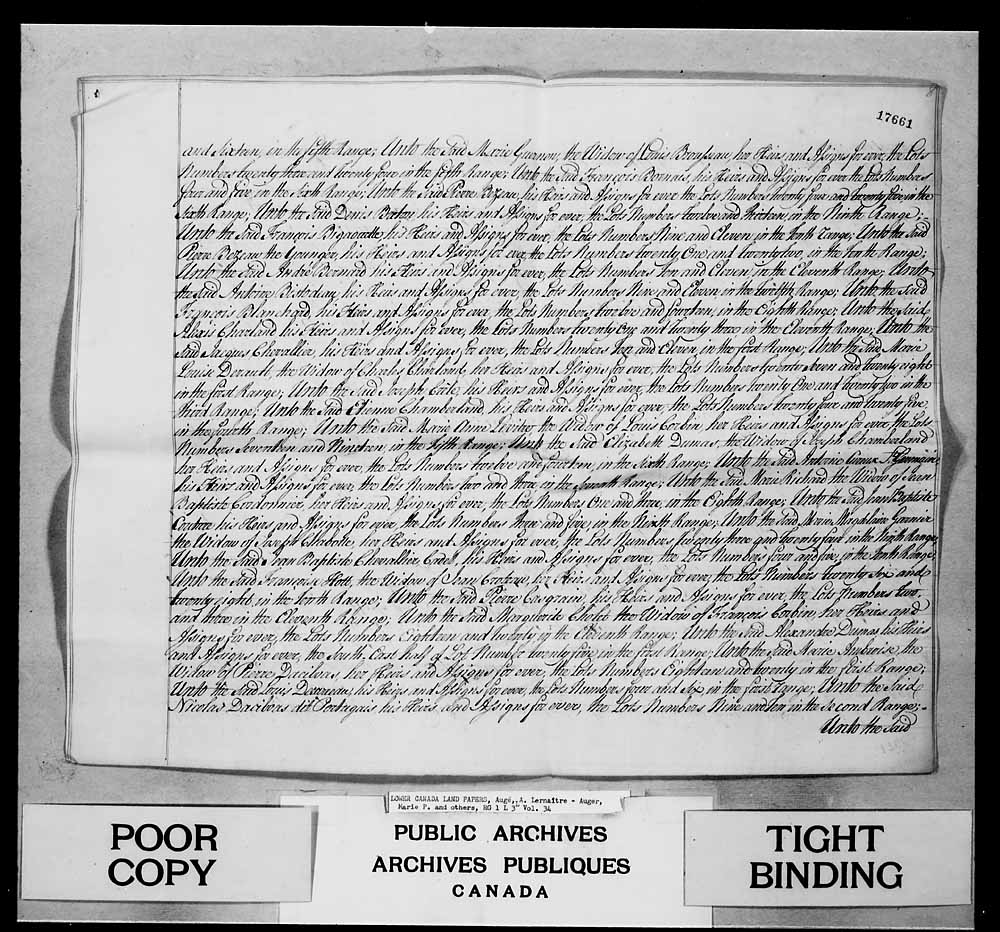 17661
and Sixteen, in the fifth Range; Unto the Said Marie Guernon, the Widow of Louis Brousseau, her Heirs and Assigns for ever, the Lots
Numbers twenty three and twenty four in the fifth Range; Unto the Said François Bernais, his Heirs and Assigns for ever the Lots Numbers
four and five, in the Sixth Range; Unto the Said Pierre Bezeau, his Heirs and Assigns for ever the Lots Numbers twenty four and twenty five in the
Sixth Range; Unto the Said Denis Berton his Heirs and Assigns for ever, the Lots Numbers twelve and thirteen, in the Ninth Range;
Unto the Said François Bigaouette, his Heirs and Assigns for ever, the Lots Numbers Nine and Eleven, in the tenth Range; Unto the Said
Pierre Bezeau the Younger, his Heirs and Assigns for ever, the Lots Numbers twenty One and twenty two, in the tenth Range;
Unto the Said André Bernard his Heirs and Assigns for ever, the Lots Numbers Ten and Eleven, in the Eleventh Range; Unto
the Said Antoine Bistodeau, his Heirs and Assigns for ever, the Lots Numbers Nine and Eleven, in the twelfth Range; Unto the Said
François Blanchard, his Heirs and Assigns for ever, the Lots Numbers twelve and fourteen, in the Eighth Range; Unto the Said
Alexis Charland his Heirs and Assigns for ever, the Lots Numbers twenty One and twenty three in the Eleventh Range, Unto the
Said Jacques Chevallier, his Heirs and Assigns for ever, the Lots Numbers Ten and Eleven, in the first Range; Unto the Said Marie
Louise the Widow of Charles Charland, her Heirs and Assigns for ever, the Lots Numbers twenty Seven and twenty eight
in the first Range; Unto the Said Joseph Coté, his Heirs and Assigns for ever, the Lots Numbers twenty One and twenty two in the
third Range; Unto the Said Etienne Chamberland, his Heirs and Assigns for ever, the Lots Numbers twenty four and twenty five
in the fourth Range; Unto the Said Marie Anne the Widow of Louis Corbin, her Heirs and Assigns for ever, the Lots
Numbers Seventeen and Nineteen, in the fifth Range; Unto the Said Elizabeth Dumas, the Widow of Joseph Chamberland
her Heirs and Assigns for ever, the Lots Numbers twelve and fourteen, in the Sixth Range; Unto the Said Antoine
his Heirs and Assigns for ever, the Lots Numbers two and three in the Seventh Range; Unto the Said Marie Richard the Widow of Jean
Baptiste Cordonnier, her Heirs and Assigns for ever, the Lots Numbers One and three, in the Eighth Range; Unto the Said Jean Baptiste
his Heirs and Assigns for ever, the Lots Numbers three and five, in the Ninth Range; Unto the Said Marie Magdelaine Garnier
the Widow of Joseph her Heirs and Assigns for ever, the Lots Numbers twenty three and twenty four in the Ninth Range
Unto the Said Jean Baptiste Chevallier Cadet, his Heirs and Assigns for ever, the Lots Numbers four and five, in the Tenth Range
Unto the Said Françoise the Widow of Jean her Heirs and Assigns for ever, the Lots Numbers twenty Six and
twenty eight, in the tenth Range; Unto the Said Pierre Casgrain, his Heirs and Assigns for ever, the Lots Numbers two,
and three in the Eleventh Range; Unto the Said Marguerite the Widow of François Corbin her Heirs and
Assigns for ever, the Lots Numbers Eighteen and twenty in the Eleventh Range; Unto the Said Alexandre Dumas his Heirs
and Assigns for ever, the South East half of Lot Number twenty five, in the first Range; Unto the Said Marie Ambroise, the
Widow of Pierre her Heirs and Assigns for ever, the Lots Numbers Eighteen and twenty in the first Range;
Unto the Said Louis his Heirs and Assigns for ever, the Lots Numbers four and Six, in the first Range; Unto the Said
Nicolas dit Portugais his Heirs and Assigns for ever, the Lots Numbers Nine and ten in the Second Range;
Unto the Said
LOWER CANADA LAND PAPERS, Augé, A. Lemaître - Auger,
Marie P. and others, RG 1 L 3" Vol. 34
POOR
COPY
PUBLIC ARCHIVES
ARCHIVES PUBLIQUES
CANADA
TIGHT
BINDING